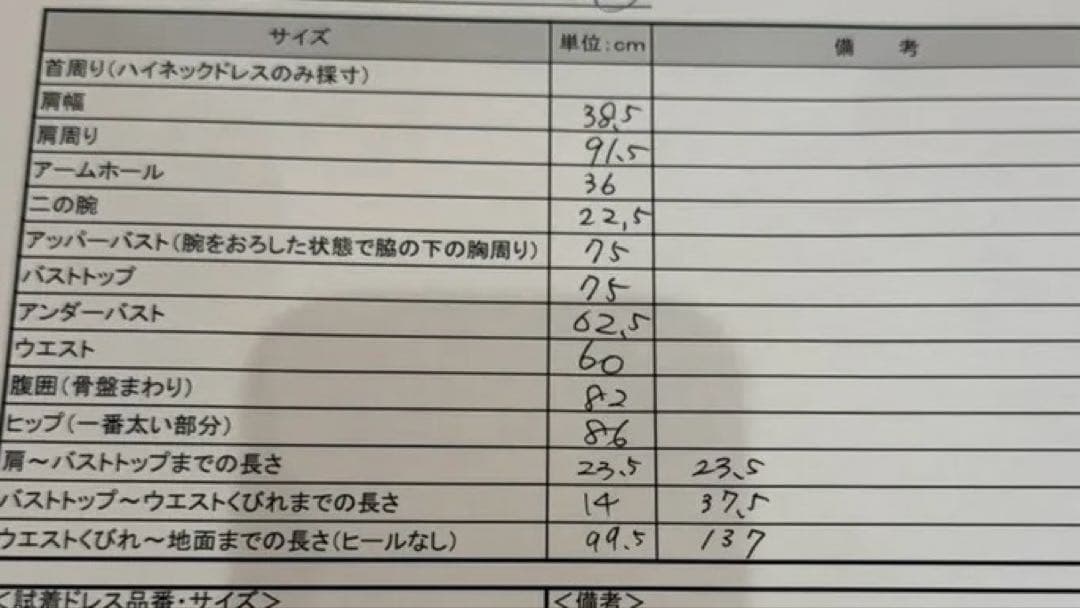 サイズ 単位:cm 備考
首周り(ハイネックドレスのみ採寸)
肩幅 38.5
肩周り 91.5
アームホール 36
二の腕 22,5
アッパーバスト(腕をおろした状態で脇の下の胸周り) 75
バストトップ 75
アンダーバスト 62,5
ウエスト 60
腹囲(骨盤まわり) 82
ヒップ(一番太い部分) 86
肩～バストトップまでの長さ 23.5 23.5
バストトップ～ウエストくびれまでの長さ 14 37.5
ウエストくびれ～地面までの長さ(ヒールなし) 99.5 137
＜試着ドレス品番・サイズ＞ ＜備考＞